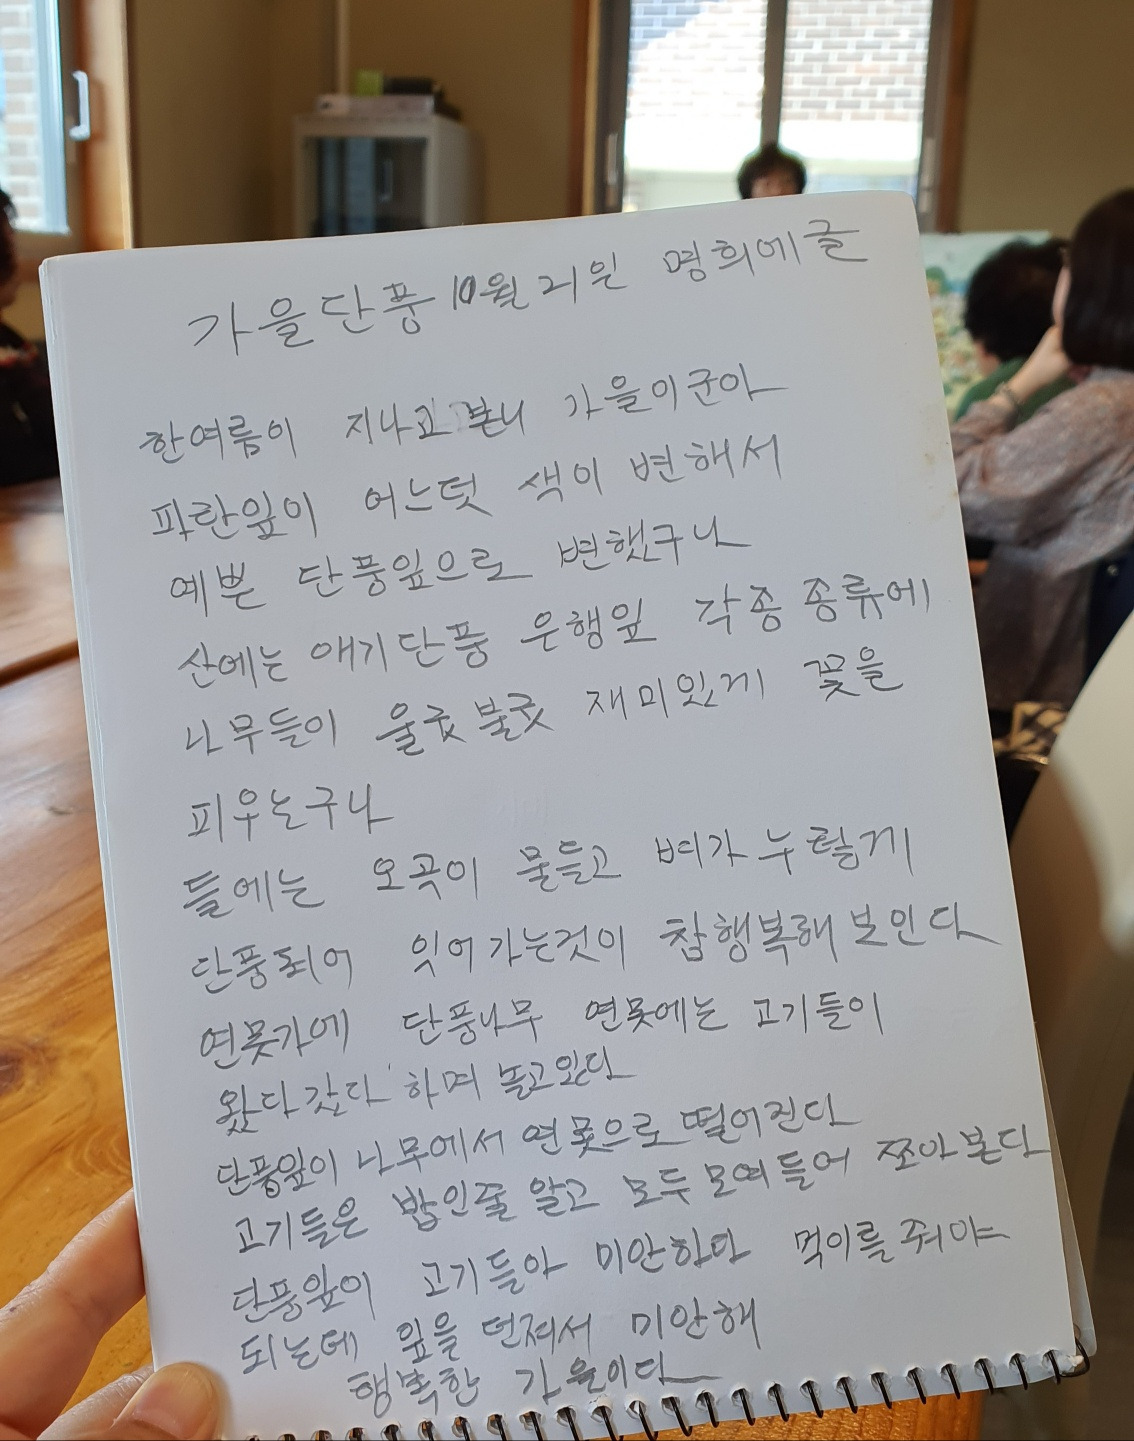 가을단풍 10월 21일 명희에글
한여름이 지나고 본니 가을이군아
파란잎이 어느덧 색이 변해서
예쁜 단풍잎으로 변했구나
산에는 애기단풍 은행잎 각종 종류에
나무들이 울긏불긏 재미있게 꽃을
피우는구나
들에는 오곡이 물들고 벼가 누렇게
단풍되어 익어가는것이 참행복해보인다
연못가에 단풍나무 연못에는 고기들이
왔다갔다 하며 놀고있다
단풍잎이 나무에서 연못으로 떨어진다
고기들은 밥인줄 알고 모두 모여들어 쪼아본다
단풍잎이 고기들아 미안하다 먹이를줘야
되는데 잎을 던져서 미안해
행복한 가을이다